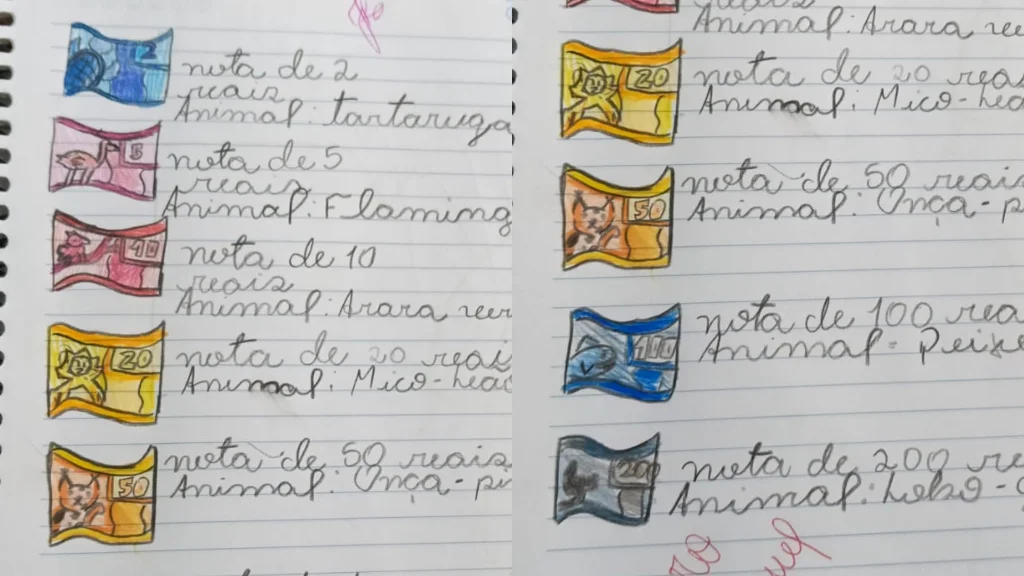 2
nota de 2
reais
Animal: tartaruga
5
nota de 5
reais
Animal: Flaming
10
nota de 10
reais
Animal: Arara ver
20
nota de 20 reais
Animal: Mico-leão
50
nota de 50 reais
Animal: Onça-pi
reais
Animal: Arara ve
20
nota de 20 rea
Animal: Mico-lea
50
nota de 50 reais
Animal: Onça-p
100
nota de 100 rea
Animal - Peixe
200
nota de 200 re
Animal: Lobo-g